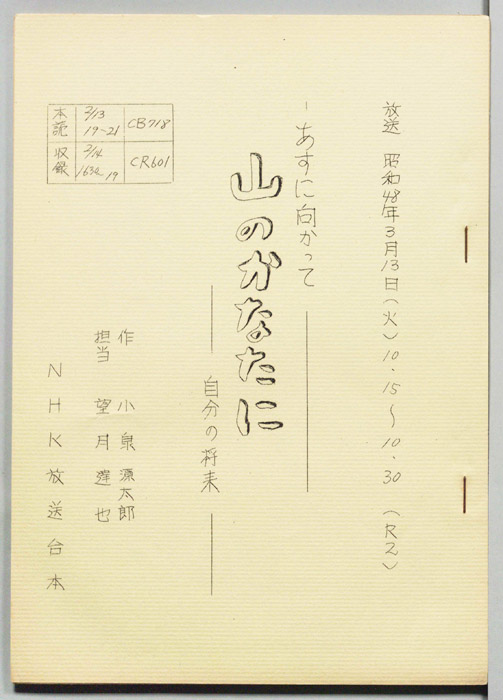 放送 昭和48年3月13日(火)10.15〜10.30 (R2)
-あすに向かって
山のかなたに
自分の将来
作 小泉源太郎
担当 望月達也
NHK放送台本
本読 2/13 19-21 CB718
収録 2/14 1630~19 CR601